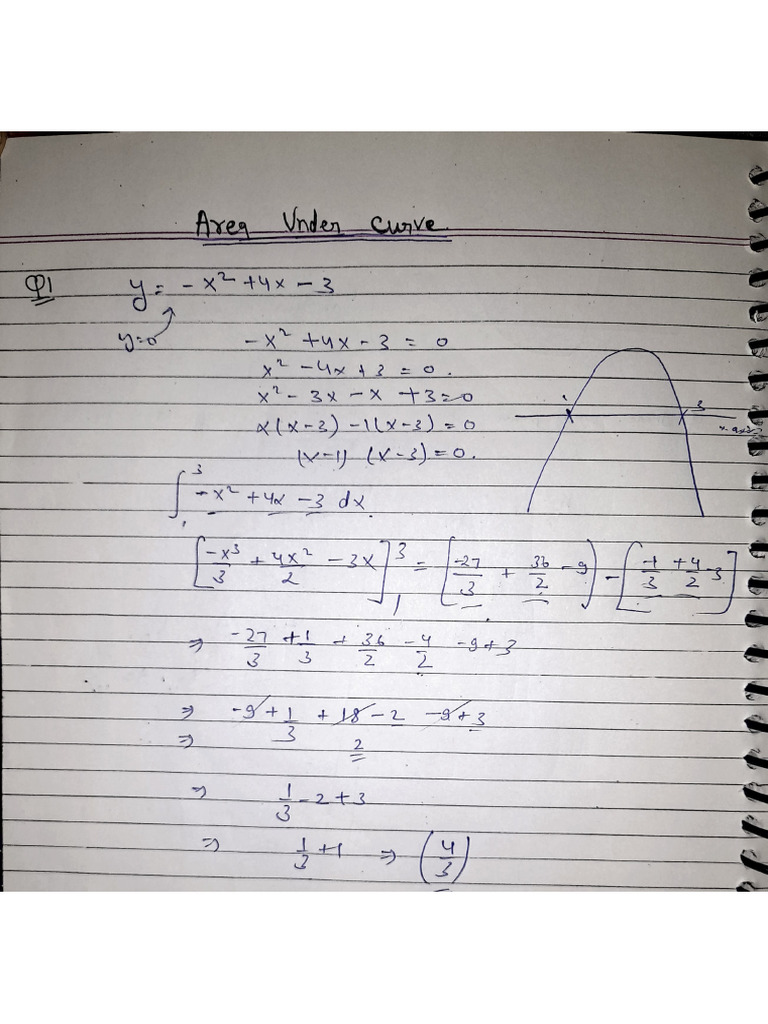 Area Under Curve
Q1 y = -x² + 4x - 3
y=0
-x² + 4x - 3 = 0
x² - 4x + 3 = 0.
x² - 3x - x + 3 = 0
x(x-3) -1(x-3) = 0
(x-1) (x-3) = 0.
1 3
x-axis
∫₁³ -x² + 4x - 3 dx
[-x³/3 + 4x²/2 - 3x]₁³ = [-27/3 + 36/2 - 9) - [-1/3 + 4/2 - 3]
⇒ -27/3 + 1/3 + 36/2 - 4/2 - 9 + 3
⇒ -9 + 1/3 + 18 - 2 - 9 + 3
⇒ 2
⇒ 1/3 - 2 + 3
⇒ 1/3 + 1 ⇒ (4/3)